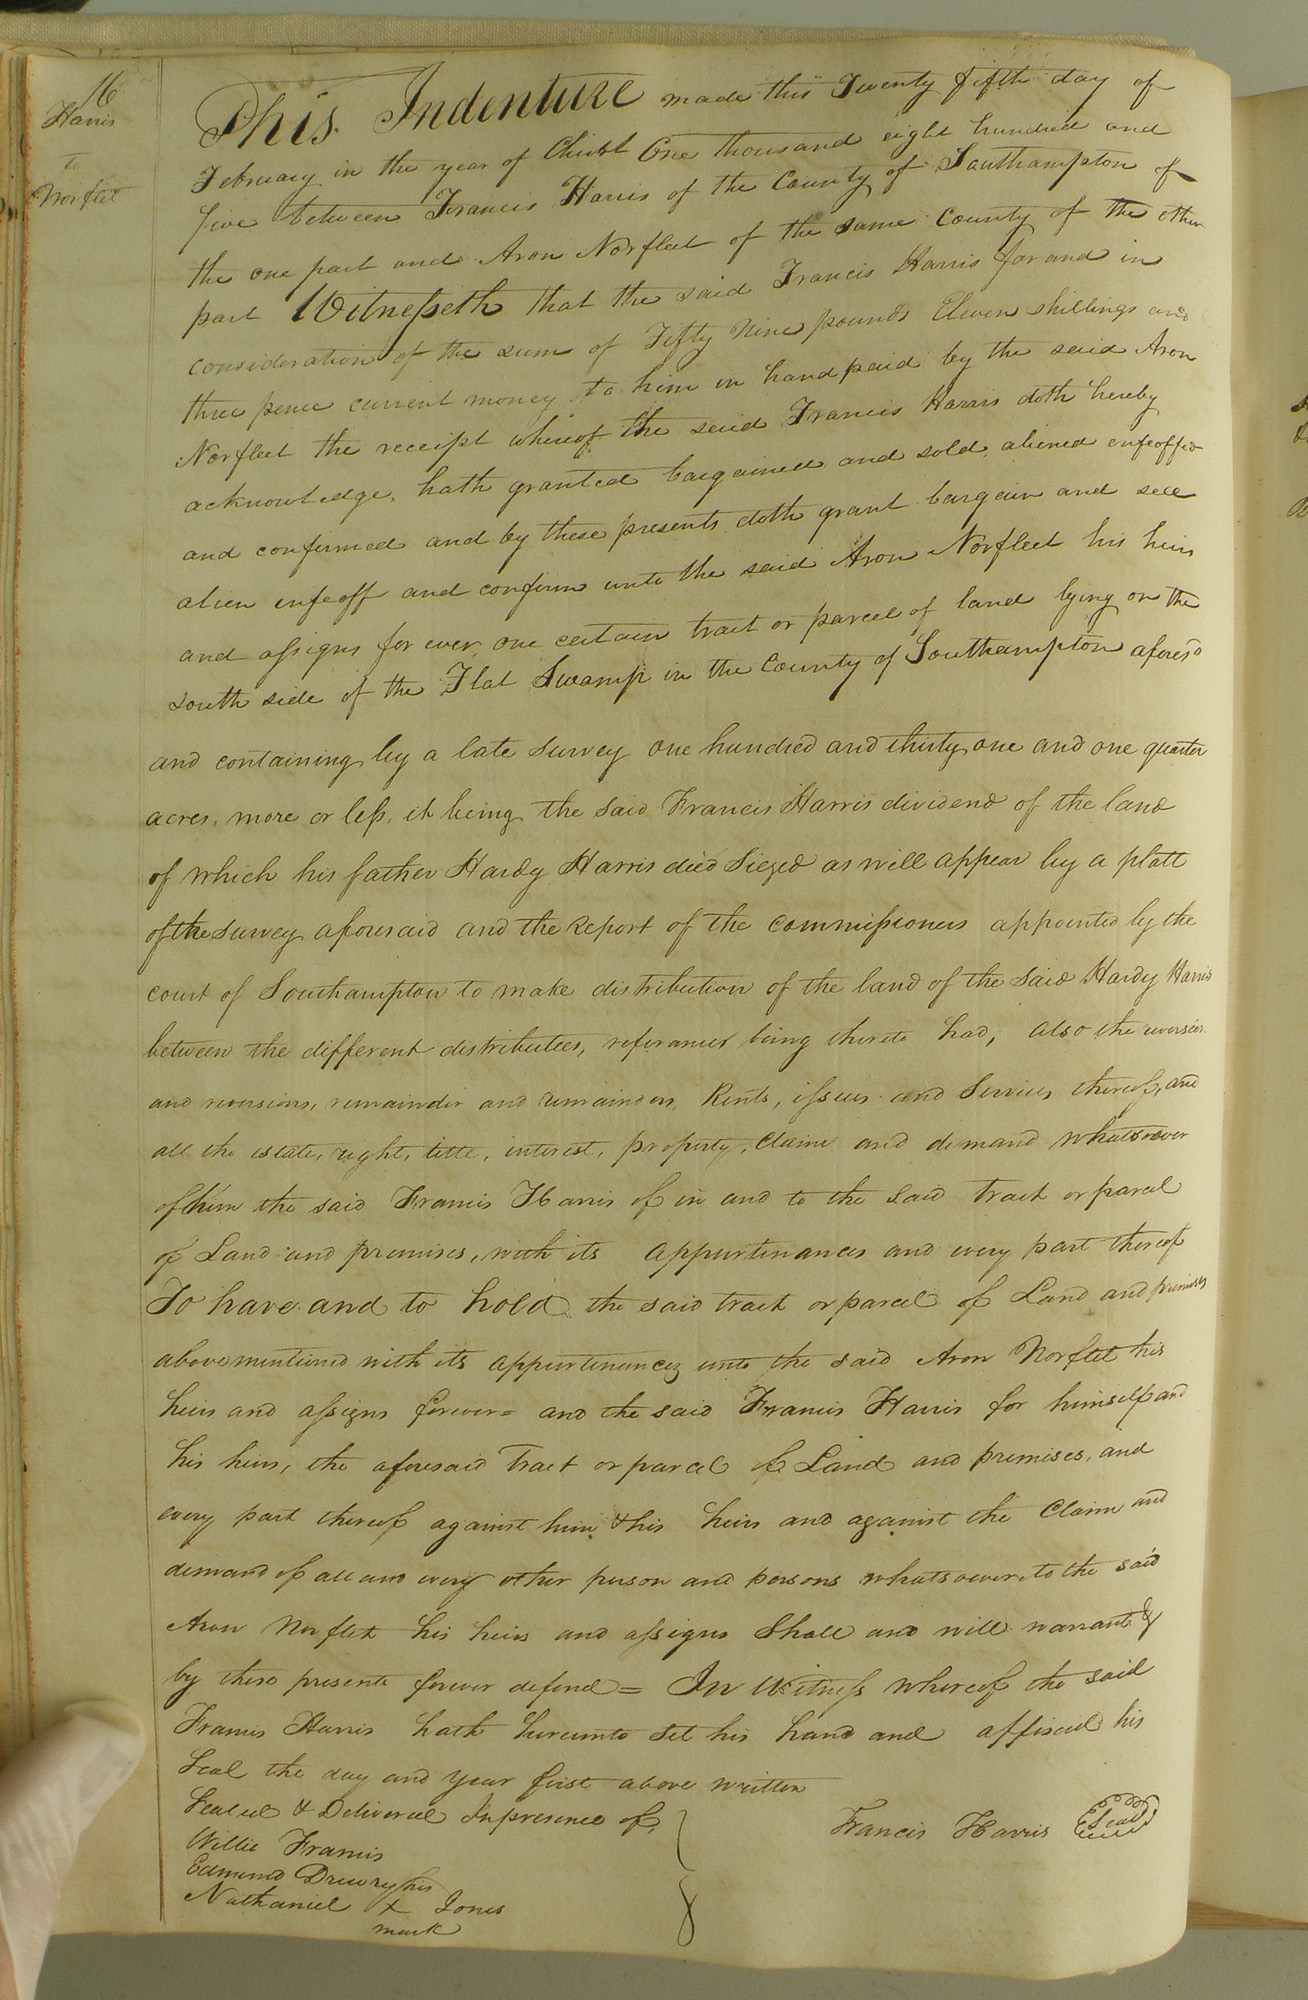 16
Harris
to
Norflet
This Indenture made this Twenty fifth day of
February in the year of Christ One thousand eight hundred and
five between Francis Harris of the County of Southampton of
the one part and Aron Norfleet of the same County of the other
part Witnesseth that the said Francis Harris for and in
consideration of the sum of Fifty Nine pounds Eleven shillings and
three pence current money to him in hand paid by the said Aron
Norfleet the receipt whereof the said Francis Harris doth hereby
acknowledge, hath granted bargained and sold aliened enfeoffed
and confirmed and by these presents doth grant bargain and sell
alien enfeoff and confirm unto the said Aron Norfleet his heirs
and assigns for ever one certain tract or parcel of land lying on the
south side of the Flat Swamp in the County of Southampton aforesd
and containing by a late Survey one hundred and thirty one and one quarter
acres, more or less, it being the said Francis Harris dividend of the land
of which his father Hardy Harris died Siezed as will appear by a platt
of the Survey aforesaid and the Report of the commissioners appointed by the
court of Southampton to make distribution of the land of the Said Hardy Harris
between the different distributees, referances being thereto had, also the reversion
and reversions, remainder and remainders, Rents, issues and Services thereof, and
all the estate, right, title, interest, property, Claim and demand whatsoever
of him the said Francis Harris of in and to the Said tract or parcel
of Land and premises, with its appurtenances and every part thereof
To have and to hold the said tract or parcel of Land and premises
abovementioned with its appurtenances unto the said Aron Norflet his
heirs and assigns forever = and the said Francis Harris for himself and
his heirs, the aforesaid Tract or parcel of Land and premises, and
every part thereof against him & his heirs and against the Claim and
demand of all and every other person and persons whatsoever to the said
Aron Norflet his heirs and assigns Shall and will warrant &
by these presents forever defend = In Witness whereof the said
Francis Harris hath hereunto Set his hand and affixed his
Seal the day and year first above written
Sealed & Delivered In presence of
Francis Harris Seal
Willie Francis
Edmund Drewry
his
Nathaniel X Jones
mark